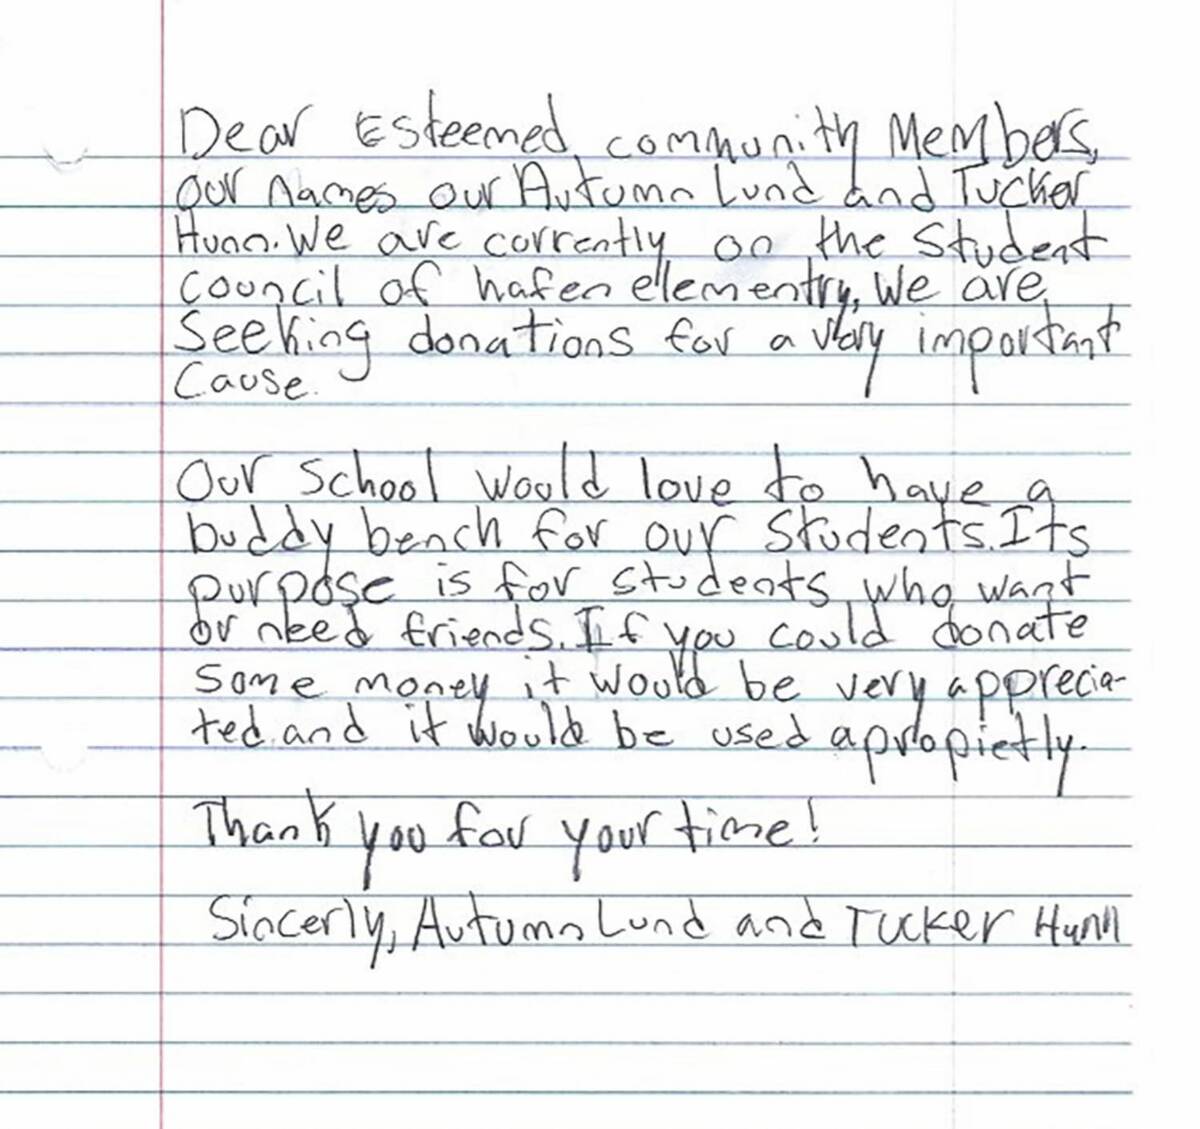 Dear Esteemed community Members,
our names our Autumn Lund and Tucker
Hunn. We are currently on the Student
council of hafen elementry, We are
Seeking donations for a very important
Cause.
Our School would love to have a
buddy bench for our Students. Its
purpose is for students who want
or need friends. If you could donate
some money it would be very apprecia-
ted and it would be used apropietly.
Thank you for your time!
Sincerly, Autumn Lund and Tucker Hunn